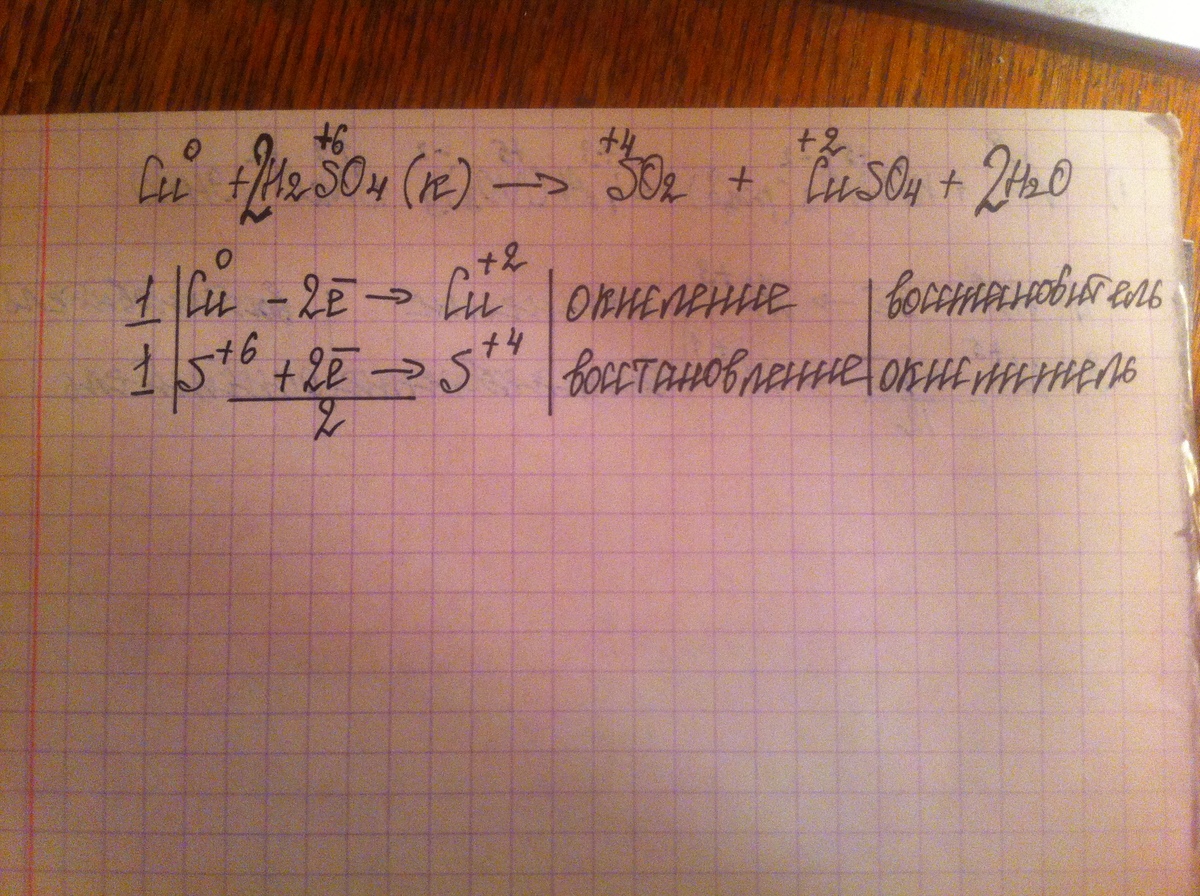 Cu⁰ + 2H₂S⁺⁶O₄ (к) → S⁺⁴O₂ + Cu⁺²SO₄ + 2H₂O
1 | Cu⁰ - 2e̅ → Cu⁺² | окисление | восстановитель
1 | S⁺⁶ + 2e̅ → S⁺⁴ | восстановление | окислитель
2